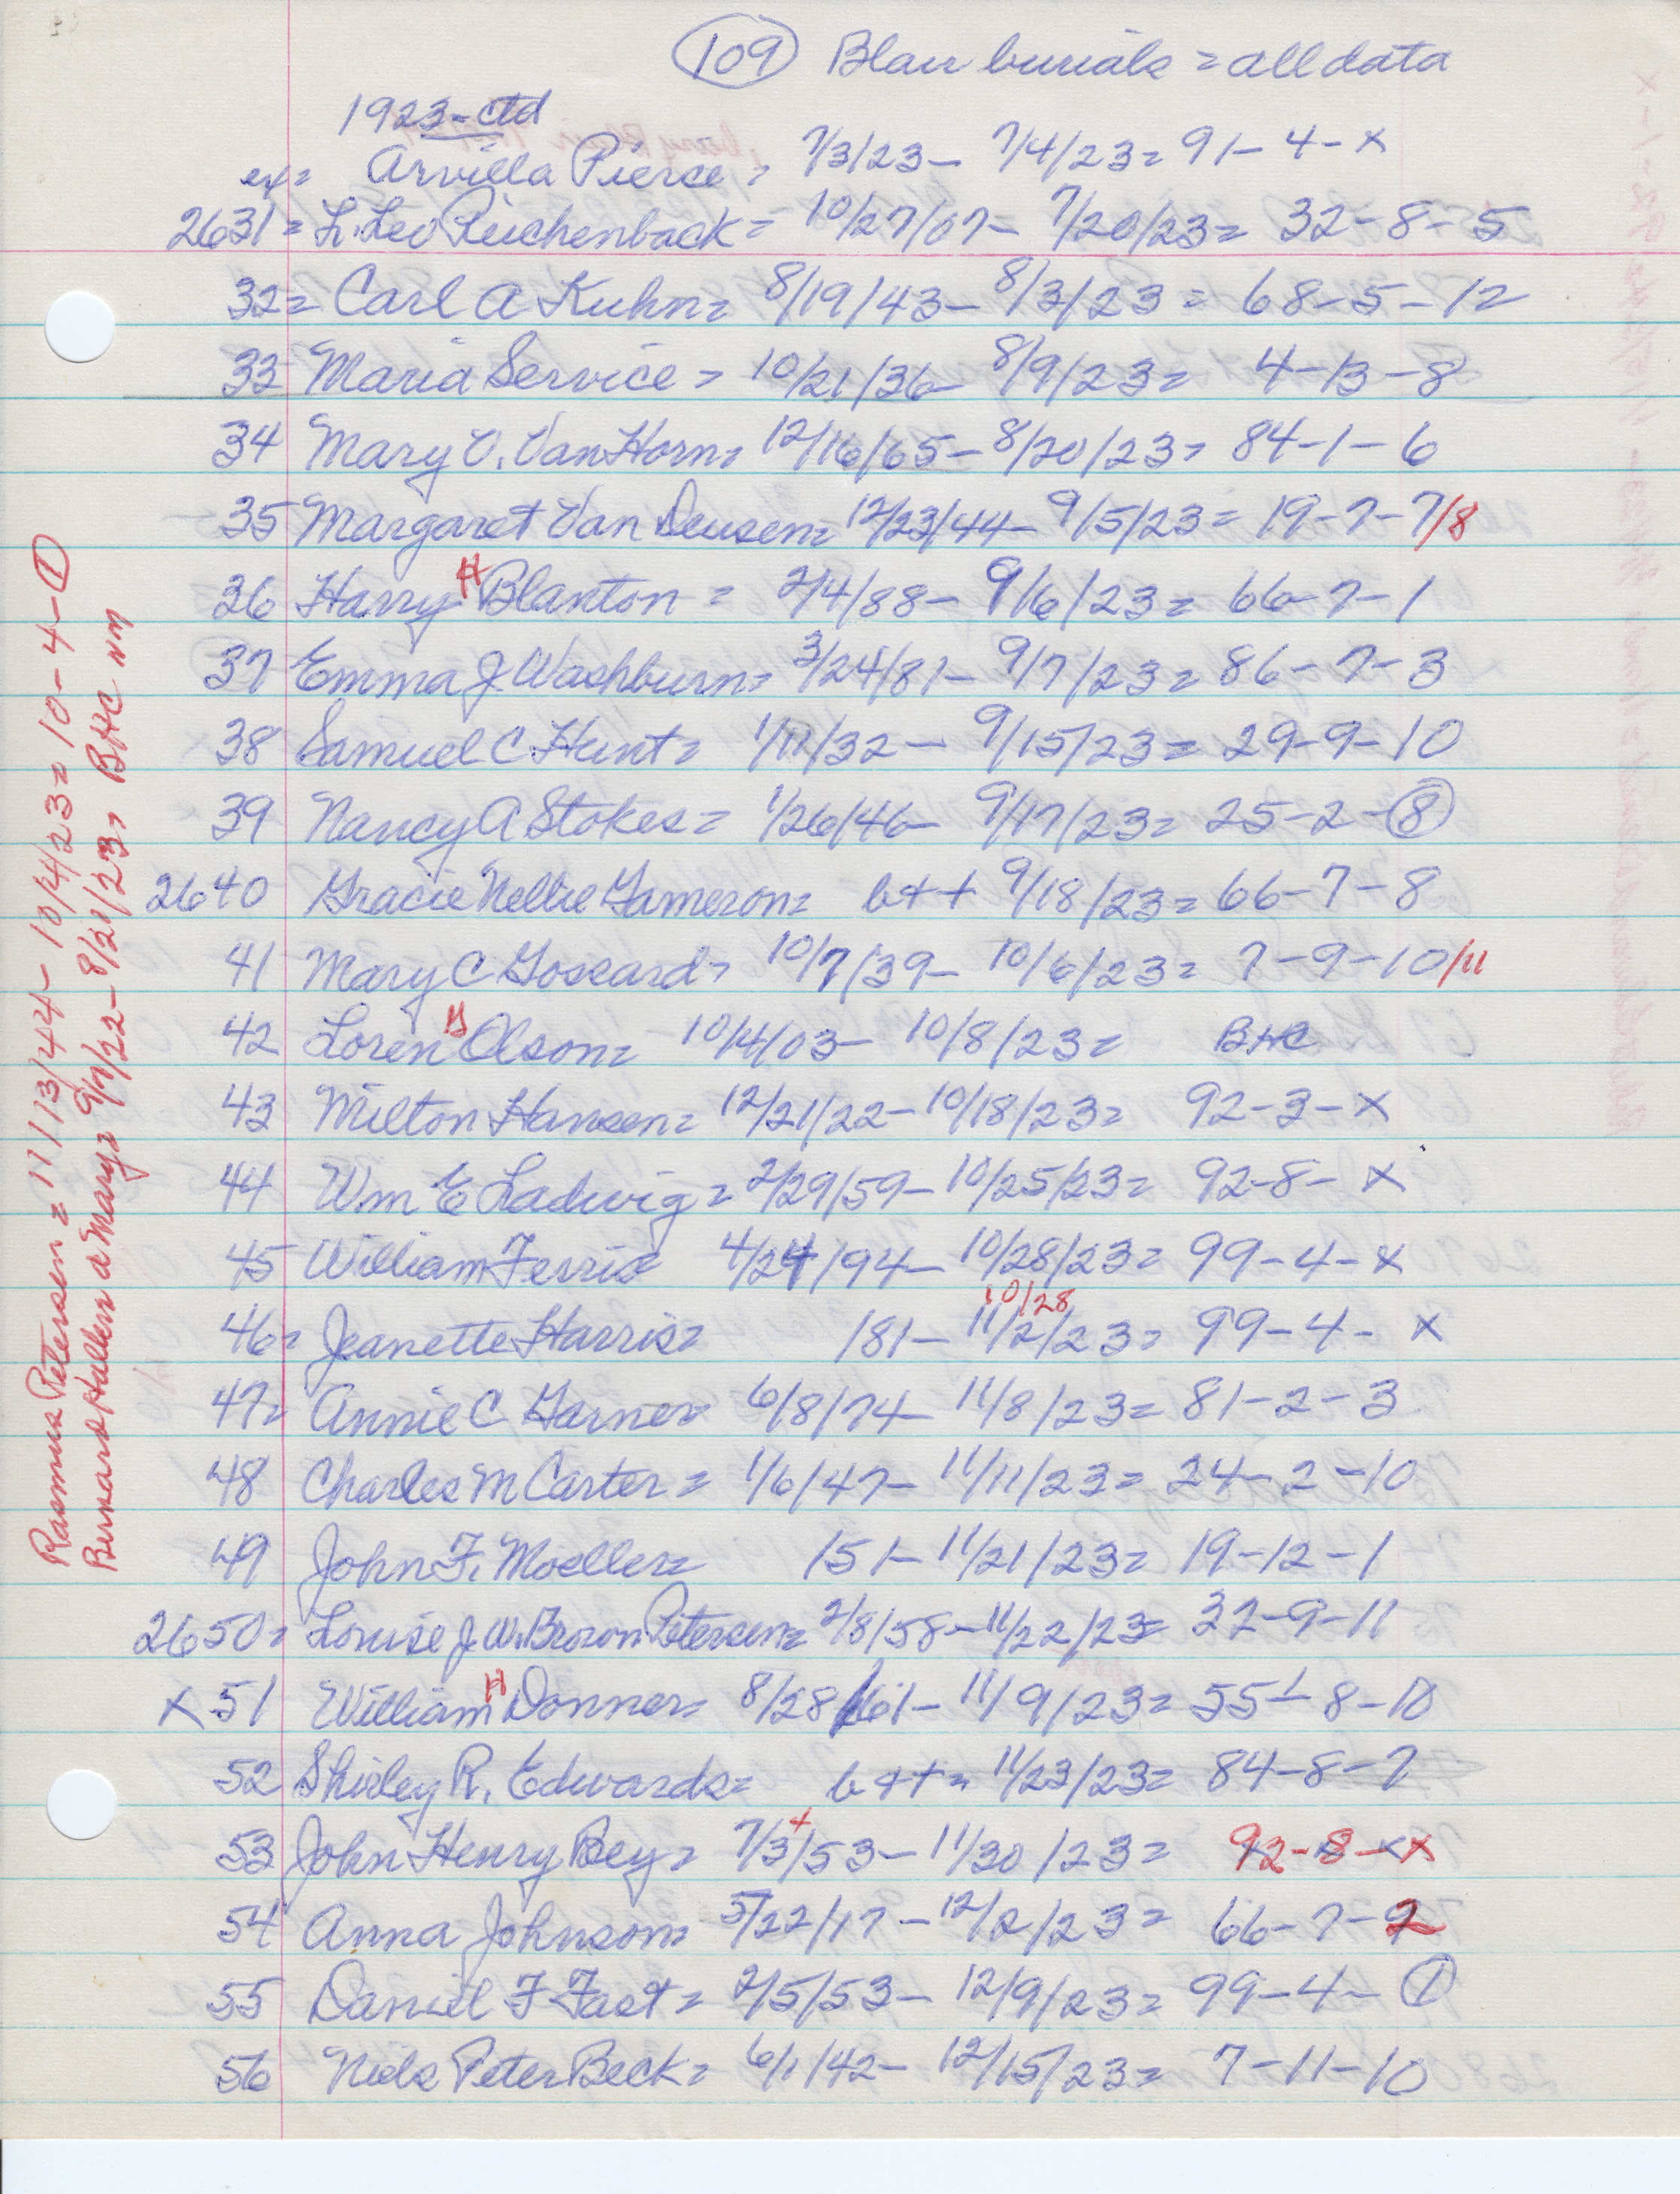 109 Blair burials = all data
1923 - ctd
ex= Arvilla Pierce = 7/3/23 - 7/4/23 = 91-4-x
2631 = L. Leo Reichenback = 10/27/07 - 7/20/23 = 32-8-5
32 = Carl A Kuhn = 8/19/43 - 8/3/23 = 68-5-12
33 Maria Service = 10/21/36 - 8/9/23 = 4-13-8
34 Mary V. Van Horn = 12/16/65 - 8/20/23 = 84-1-6
35 Margaret Van Deusen = 12/23/44 - 9/5/23 = 19-7-7/8
36 Harry H Blanton = 2/4/88 - 9/6/23 = 66-7-1
37 Emma J Washburn = 3/24/81 - 9/7/23 = 86-7-3
38 Samuel C Hunt = 1/11/32 - 9/15/23 = 29-9-10
39 Nancy A Stokes = 1/26/46 - 9/17/23 = 25-2-8
2640 Gracie Nellie Gameron = b++ 9/18/23 = 66-7-8
41 Mary C Gossard = 10/7/39 - 10/6/23 = 7-9-10/11
42 Loren G Olson = 10/4/03 - 10/8/23 = BHC
43 Milton Hansen = 12/21/22 - 10/18/23 = 92-3-x
44 Wm E Ladwig = 2/29/59 - 10/25/23 = 92-8-x
45 William Ferris 4/24/94 - 10/28/23 = 99-4-x
10/28
46 = Jeanette Harris = /81 - 11/2/23 = 99-4-x
47 = Annie C Garner 6/8/74 - 11/8/23 = 81-2-3
48 Charles M Carter = 1/6/47 - 11/11/23 = 24-2-10
49 John F. Moeller = /51 - 11/21/23 = 19-12-1
2650 = Louise J.W. Brown Petersen = 2/8/58 - 11/22/23 = 32-9-11
x 51 William H Donner = 8/28/61 - 11/9/23 = 55-8-10
52 Shirley R. Edwards = b++ = 11/23/23 = 84-8-7
53 John Henry Bey = 7/3+/53 - 11/30/23 = 92-8-xx
54 Anna Johnson = 5/22/17 - 12/2/23 = 66-7-2
55 Daniel F Fast = 2/5/53 - 12/9/23 = 99-4-1
56 Niels Peter Beck = 6/1/42 - 12/15/23 = 7-11-10
Rasmus Petersen = 11/13/44 - 10/4/23 = 10-4-1
Bernard Hullen a Mary = 9/7/22 - 8/21/23, BHC nm